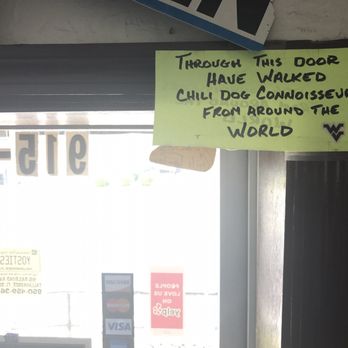 THROUGH THIS DOOR
HAVE WALKED
CHILI DOG CONNOISSEU
FROM AROUND THE
WORLD
WV
915-
PEOPLE
LOVE US
ON
yelp
VISA
YOSTIES